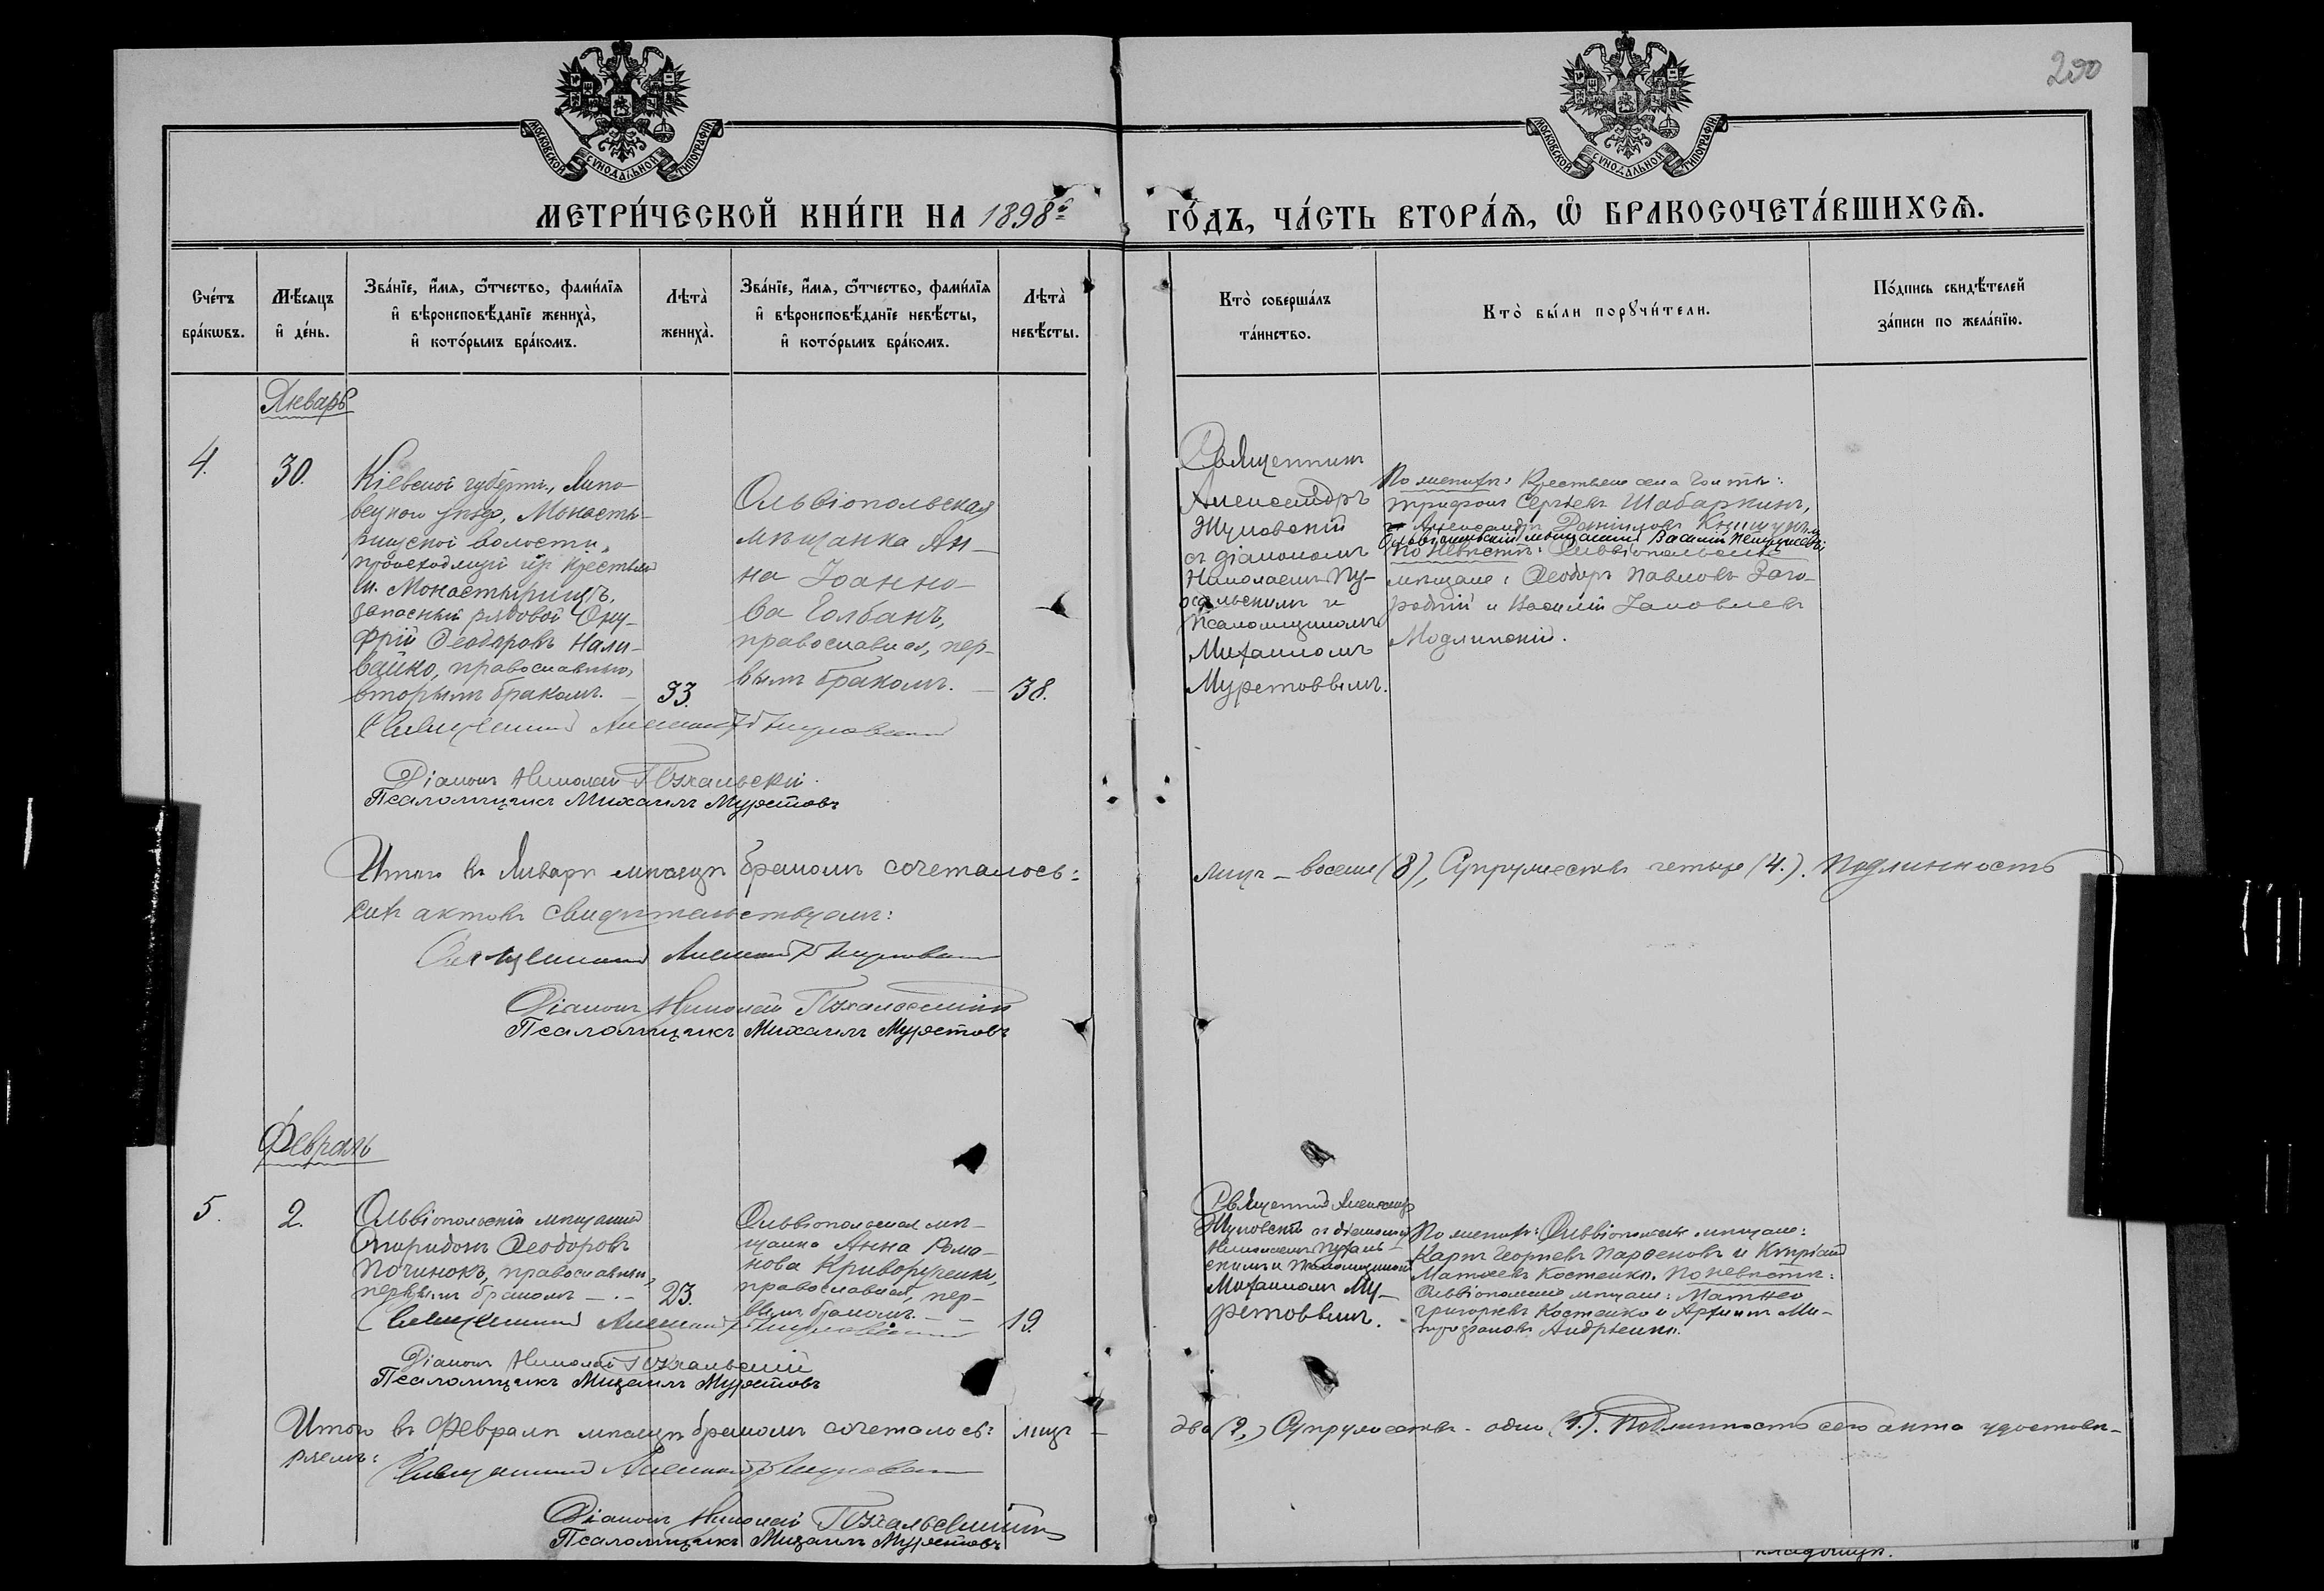 200
МОСКОВСКОЙ СѴНОДАЛЬНОЙ ТИПОГРАФІИ
МОСКОВСКОЙ СѴНОДАЛЬНОЙ ТИПОГРАФІИ
МЕТРИ́ЧЕСКОЙ КНИ́ГИ НА 1898й
ГО́ДЪ, ЧА́СТЬ ВТОРА́Я, Ѡ БРАКОСОЧЕТА́ВШИХСЯ.
Сче́тъ
бра́кωвъ.
Мѣ́сяцъ
и де́нь.
Зва́нїе, и҆́мя, ѻ҆́тчество, фами́лїя
и҆ вѣроисповѣ́данїе жениха̀,
и҆ кото́рымъ бра́комъ.
Лѣта̀
жениха̀.
Зва́нїе, и҆́мя, ѻ҆́тчество, фами́лїя
и҆ вѣроисповѣ́данїе невѣ́сты,
и҆ кото́рымъ бра́комъ.
Лѣта̀
невѣ́сты.
Кто̀ соверша́лъ
та́инство.
Кто̀ бы́ли порꙋчи́тели.
По́дпись свидѣ́телей
за́писи по жела́нїю.
Январь
4.
30.
Кіевской губерніи, Липо-
вецкаго уѣзда, Монасты-
рищской волости,
происходящій изъ крестьянъ
м. Монастырищъ,
запасный рядовой Ону-
фрій Ѳеодоровъ Нали-
вайко, православный,
вторымъ бракомъ. —
33.
Ольвіопольская
мѣщанка Ан-
на Іоанно-
ва Голбанъ,
православная, пер-
вымъ бракомъ. —
38.
Священникъ
Александръ
Жуковскій
съ діакономъ
Николаемъ Пу-
хальскимъ и
псаломщикомъ
Михаиломъ
Муретовымъ.
По женихѣ: Крестьяне села Голты:
Трифонъ Сергѣевъ Шабаркинъ,
Ольвіопольскій мѣщанинъ Василій
По невѣстѣ: Ольвіопольскіе
мѣщане: Ѳеодоръ Павловъ Заго-
родній и Василій Іаковлевъ
Модлинскій.
Священникъ Александръ Жуковскій
Діаконъ Николай Пухальскій
Псаломщикъ Михаилъ Муретовъ
Итого въ Январѣ мѣсяцѣ бракомъ сочеталось:
лицъ — восемь (8), Супружествъ четыре (4.). Подлинность
сихъ актовъ свидѣтельствуемъ:
Священникъ Александръ Жуковскій
Діаконъ Николай Пухальскій
Псаломщикъ Михаилъ Муретовъ
Февраль
5.
2.
Ольвіопольскій мѣщанинъ
Спиридонъ Ѳеодоровъ
Починокъ, православный,
первымъ бракомъ — . —
23.
Ольвіопольская мѣ-
щанка Анна Рома-
нова Криворученко,
православная, пер-
вымъ бракомъ. — —
19.
Священникъ Александръ
Жуковскій съ діакономъ
Николаемъ Пухаль-
скимъ и псаломщикомъ
Михаиломъ Му-
ретовымъ.
По женихѣ: Ольвіопольскіе мѣщане:
Карпъ Георгіевъ Парѳеновъ и Кипріанъ
Матѳеевъ Костенко. По невѣстѣ:
Ольвіопольскіе мѣщане: Матѳей
Григорьевъ Костенко и Архипъ Ми-
трофановъ Андрѣенко.
Священникъ Александръ Жуковскій
Діаконъ Николай Пухальскій
Псаломщикъ Михаилъ Муретовъ
Итого въ Февралѣ мѣсяцѣ бракомъ сочеталось: лицъ —
два (2,) Супружествъ - одно (1.). Подлинность сего акта удостовѣ-
ряемъ:
Священникъ Александръ Жуковскій
Діаконъ Николай Пухальскій
Псаломщикъ Михаилъ Муретовъ